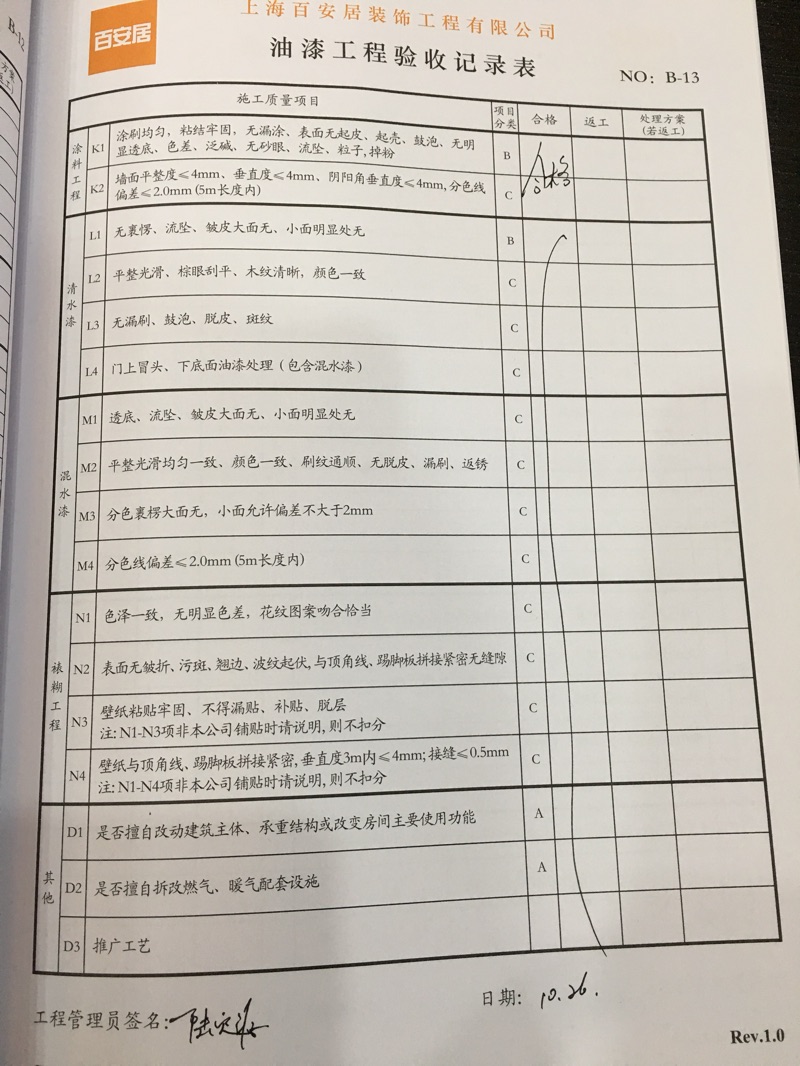 上海百安居装饰工程有限公司
百安居
油漆工程验收记录表
NO: B-13
B-12
施工质量项目 项目分类 合格 返工 处理方案(若返工)
涂料工程
K1 涂刷均匀，粘结牢固，无漏涂、表面无起皮、起壳、鼓泡、无明
显透底、色差、泛碱、无砂眼、流坠、粒子,掉粉 B
合格
K2 墙面平整度≤4mm、垂直度≤4mm、阴阳角垂直度≤4mm,分色线
偏差≤2.0mm (5m长度内) C
清水漆
L1 无裹愣、流坠、皱皮大面无、小面明显处无 B
L2 平整光滑、棕眼刮平、木纹清晰，颜色一致 C
L3 无漏刷、鼓泡、脱皮、斑纹 C
L4 门上冒头、下底面油漆处理（包含混水漆） C
混水漆
M1 透底、流坠、皱皮大面无、小面明显处无 C
M2 平整光滑均匀一致、颜色一致、刷纹通顺、无脱皮、漏刷、返锈 C
M3 分色裹楞大面无，小面允许偏差不大于2mm C
M4 分色线偏差≤2.0mm (5m长度内) C
裱糊工程
N1 色泽一致，无明显色差，花纹图案吻合恰当 C
N2 表面无皱折、污斑、翘边、波纹起伏,与顶角线、踢脚板拼接紧密无缝隙 C
N3 壁纸粘贴牢固、不得漏贴、补贴、脱层 C
注: N1-N3项非本公司铺贴时请说明,则不扣分
N4 壁纸与顶角线、踢脚板拼接紧密,垂直度3m内≤4mm; 接缝≤0.5mm C
注: N1-N4项非本公司铺贴时请说明,则不扣分
其他
D1 是否擅自改动建筑主体、承重结构或改变房间主要使用功能 A
D2 是否擅自拆改燃气、暖气配套设施 A
D3 推广工艺
日期: 10.26.
工程管理员签名:
Rev.1.0